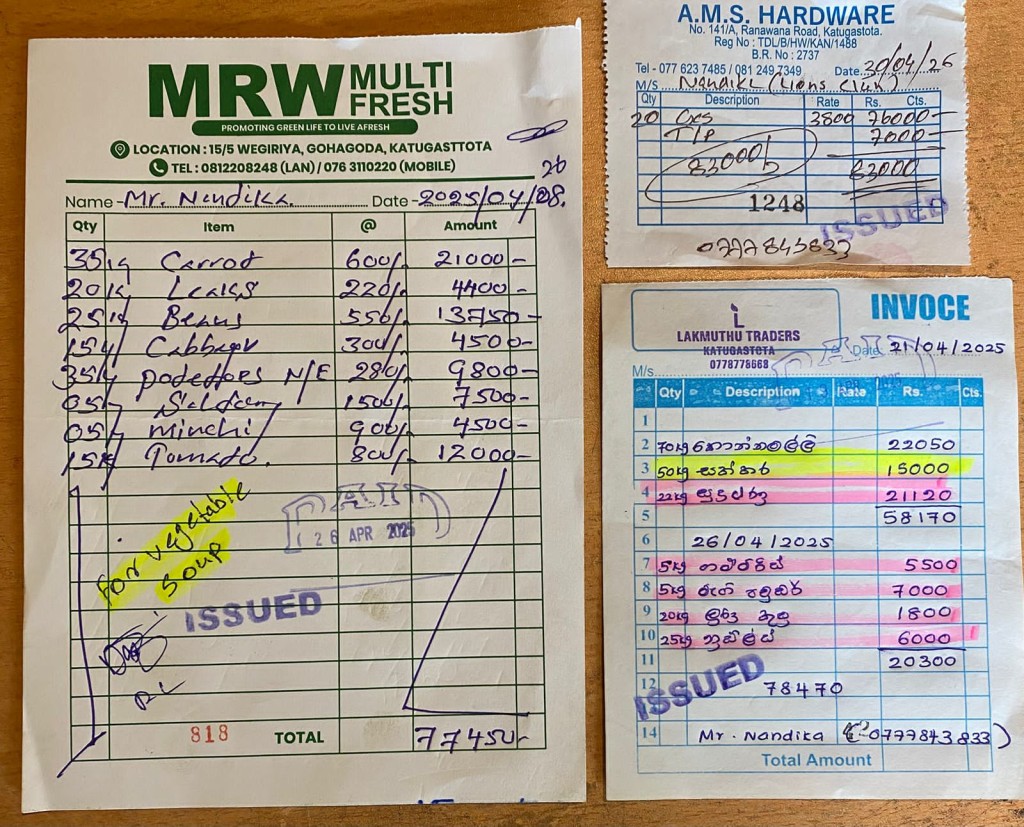 MRW MULTI FRESH
PROMOTING GREEN LIFE TO LIVE AFRESH
LOCATION : 15/5 WEGIRIYA, GOHAGODA, KATUGASTTOTA
TEL : 0812208248 (LAN) / 076 3110220 (MOBILE)
26
Name - Mr. Nandika. Date - 2025/04/08.
Qty Item @ Amount
35kg Carrot 600/- 21000-
20kg Leaks 220/- 4400-
25kg Beans 550/- 13750-
15kg Cabbage 300/- 4500-
35kg N/E 280/- 9800-
05kg 1500/- 7500-
05kg Minchi 900/- 4500-
15kg Tomado. 800/- 12000-
For vegetable
soup
PAID
26 APR 2025
ISSUED
818 TOTAL 77450-
A.M.S. HARDWARE
No. 141/A, Ranawana Road, Katugastota.
Reg No : TDL/B/HW/KAN/1488
B.R. No : 2737
Tel - 077 623 7485 / 081 249 7349 Date 20/04/26
M/S Nandika (Lions Club)
Qty Description Rate Rs. Cts.
20 3800 76000-
T/P 7000-
83000/- 83000
1248
ISSUED
0777843833
INVOCE
LAKMUTHU TRADERS
KATUGASTOTA
0778778668
PAID
Date 21/04/2025
APR 2025
M/s
Qty Description Rate Rs. Cts.
1
2 70kg කොත්තමල්ලි 22050
3 50kg 15000
4 22kg 21120
5 58170
6 26/04/2025
7 5kg 5500
8 5kg 7000
9 20kg 1800
10 25kg 6000
11 20300
12 78470
ISSUED
14 Mr. Nandika (0777843833)
Total Amount